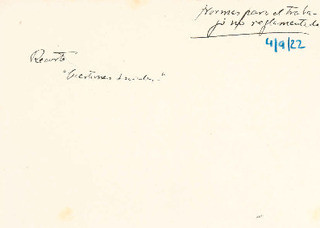 Normas para el traba-
jo no reglamentado
4/9/22
Recorte
"Cuestiones sociales."